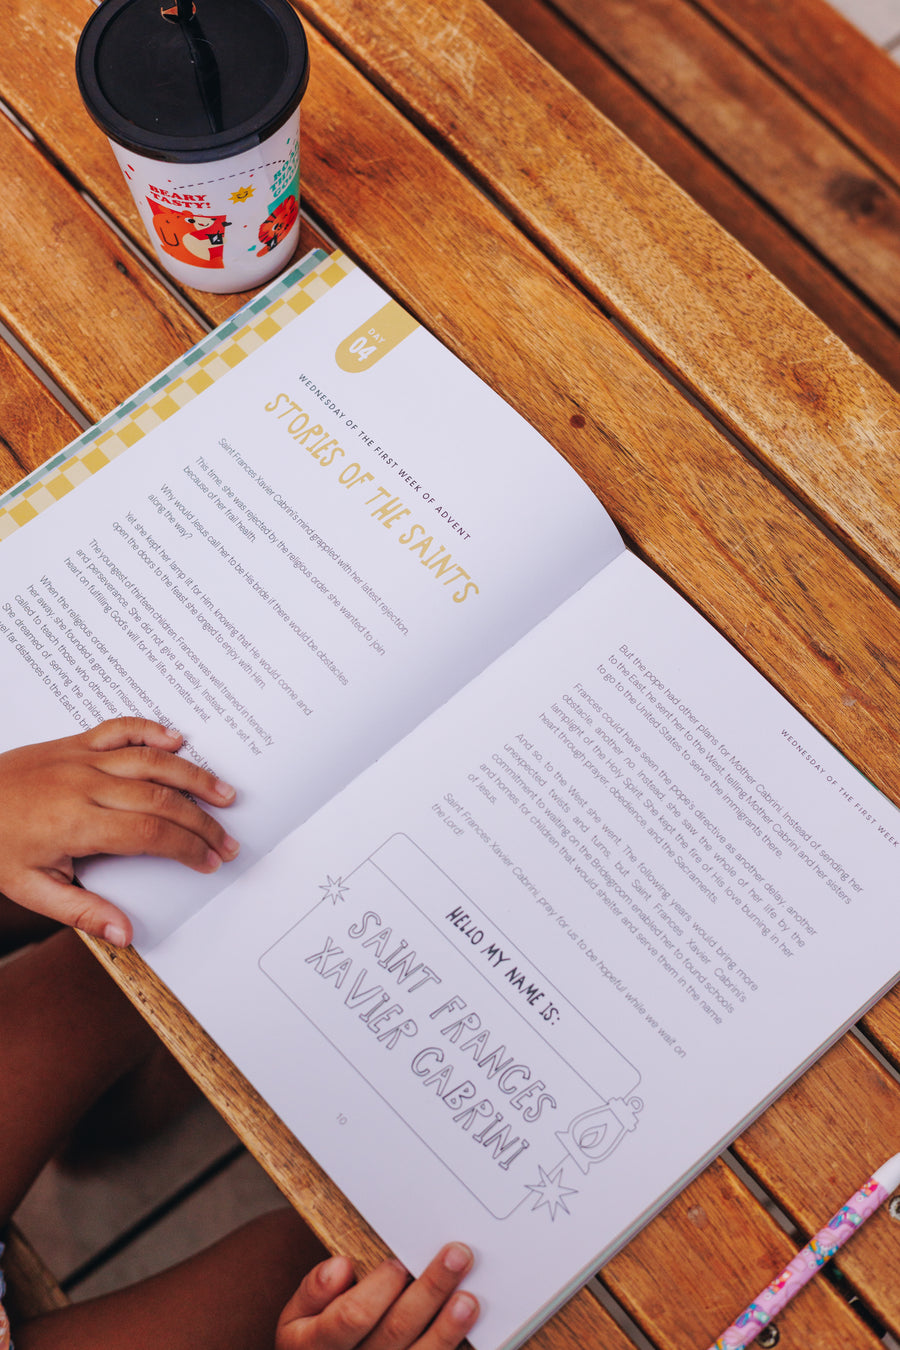 BEARY
TASTY!
DAY
04
WEDNESDAY OF THE FIRST WEEK OF ADVENT
STORIES OF THE SAINTS
Saint Frances Xavier Cabrini's mind grappled with her latest rejection.
This time, she was rejected by the religious order she wanted to join
because of her frail health.
Why would Jesus call her to be His bride if there would be obstacles
along the way?
Yet she kept her lamp lit for Him, knowing that He would come and
open the doors to the feast she longed to enjoy with Him.
The youngest of thirteen children, Frances was well trained in tenacity
and perseverance. She did not give up easily. Instead, she set her
heart on fulfilling God's will for her life, no matter what.
When the religious order whose members taught school
her away, she founded a group of missionary
called to teach those who otherwise
She dreamed of serving the children
far distances to the East to
WEDNESDAY OF THE FIRST WEEK
But the pope had other plans for Mother Cabrini. Instead of sending her
to the East, he sent her to the West, telling Mother Cabrini and her sisters
to go to the United States to serve the immigrants there.
Frances could have seen the pope's directive as another delay, another
obstacle, another no. Instead, she saw the whole of her life by the
lamplight of the Holy Spirit. She kept the fire of His love burning in her
heart through prayer, obedience and the Sacraments.
And so, to the West she went. The following years would bring more
unexpected twists and turns, but Saint Frances Xavier Cabrini's
commitment to waiting on the Bridegroom enabled her to found schools
and homes for children that would shelter and serve them in the name
of Jesus.
Saint Frances Xavier Cabrini, pray for us to be hopeful while we wait on
the Lord!
HELLO MY NAME IS:
SAINT FRANCES
XAVIER CABRINI
10